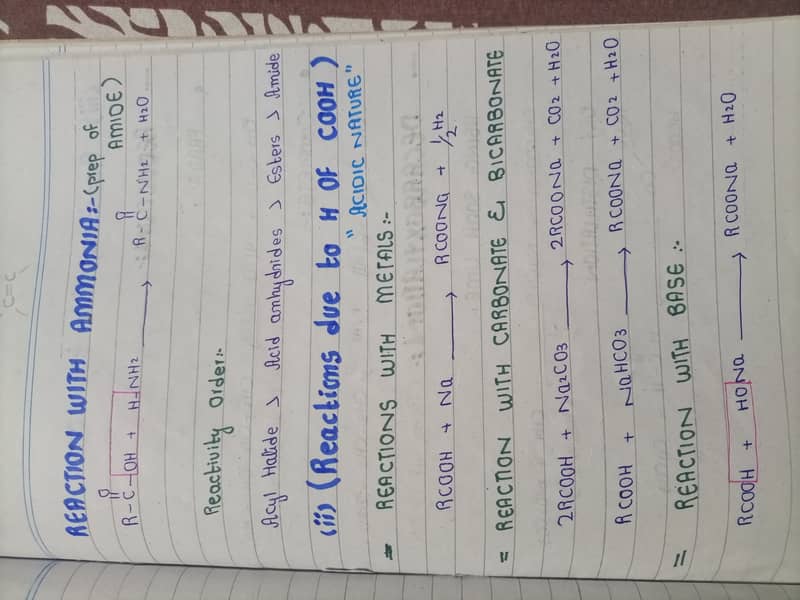 C=C
REACTION WITH AMMONIA:-(prep of
AMIDE)
O
R-C-OH + H-NH2 ⟶ R-C-NH2 + H2O
O
Reactivity Order:-
Acyl Halide > Acid anhydrides > Esters > Amide
(ii) (Reactions due to H OF COOH)
"ACIDIC NATURE"
= REACTIONS WITH METALS:-
RCOOH + Na ⟶ RCOONa + 1/2 H2
= REACTION WITH CARBONATE & BICARBONATE
2RCOOH + Na2CO3 ⟶ 2RCOONa + CO2 + H2O
RCOOH + NaHCO3 ⟶ RCOONa + CO2 + H2O
= REACTION WITH BASE:-
RCOOH + HONa ⟶ RCOONa + H2O